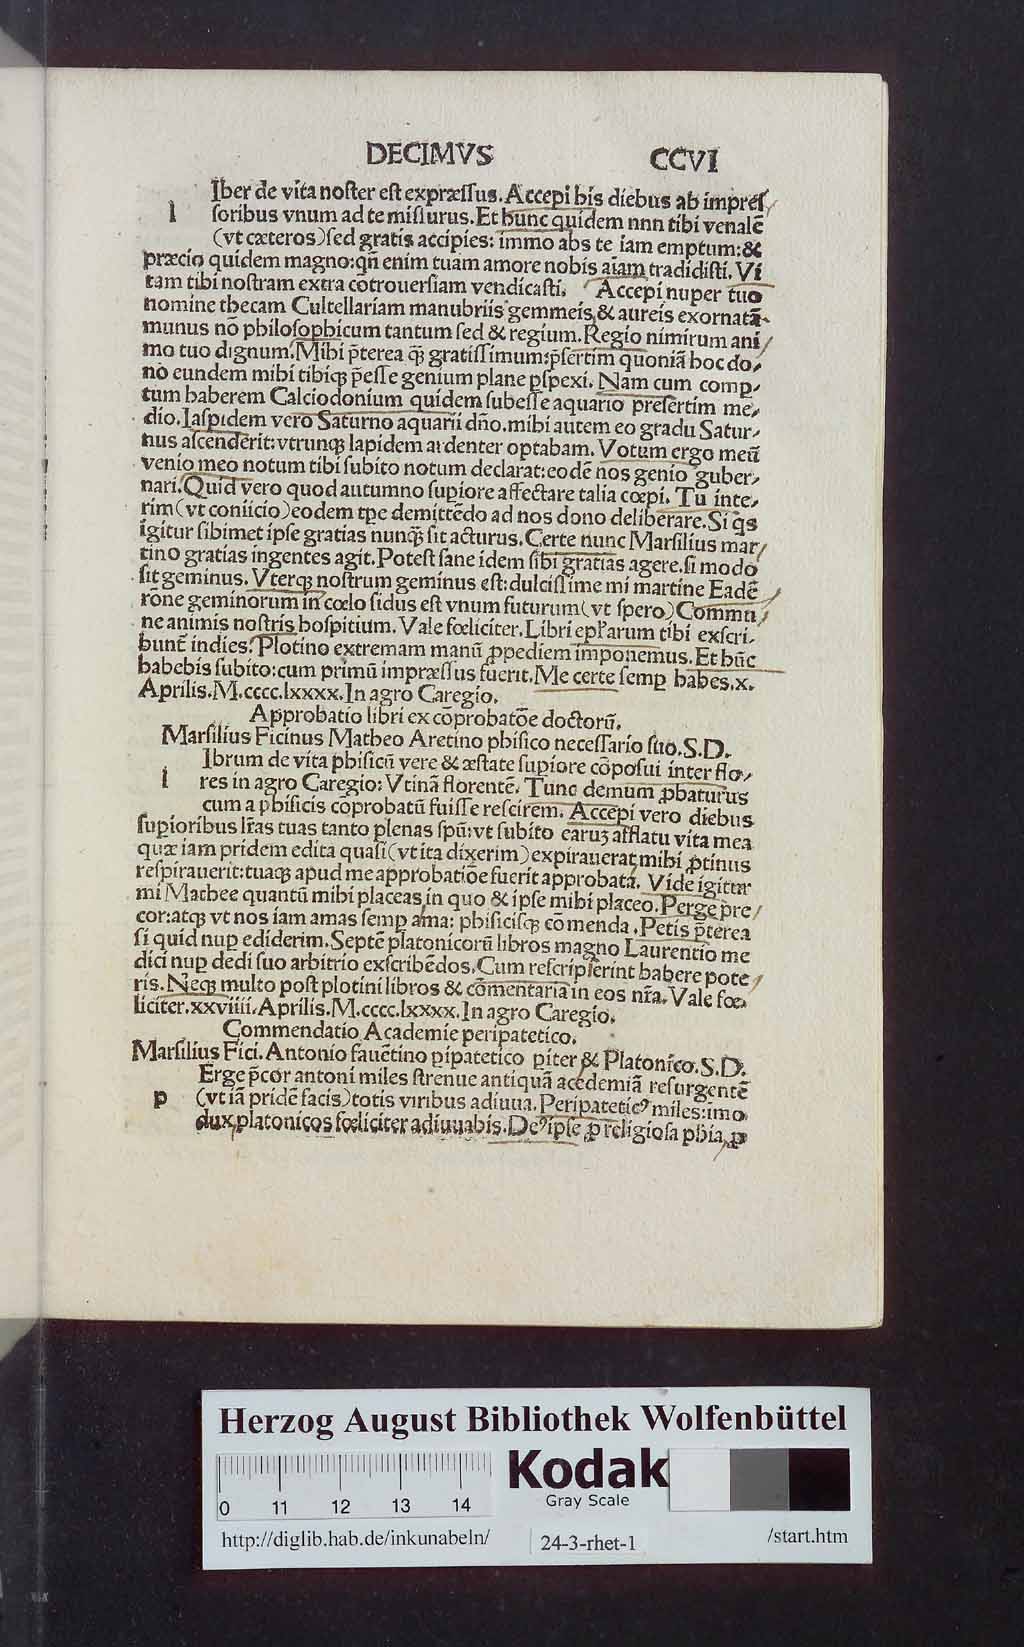 DECIMVS CCVI
l Iber de vita noster est expræssus. Accepi his diebus ab impres/
soribus vnum ad te missurus. Et hunc quidem nnn tibi venalē
(vt cæteros) sed gratis accipies: immo abs te iam emptum: &
præcio quidem magno: qñ enim tuam amore nobis aīam tradidisti. Vi
tam tibi nostram extra cōtrouersiam vendicasti. Accepi nuper tuo
nomine thecam Cultellariam manubriis gemmeis, & aureis exornatā
munus nō philosophicum tantum sed & regium. Regio nimirum ani/
mo tuo dignum. Mihi p̄terea q̄ꝫ gratissimum: p̄sertim quoniā hoc do/
no eundem mihi tibiqꝫ p̄esse genium plane ꝑspexi. Nam cum comp/
tum haberem Calciodonium quidem subesse aquario presertim me/
dio. Iaspidem vero Saturno aquarii dño. mihi autem eo gradu Satur/
nus ascenderit: vtrunqꝫ lapidem ardenter optabam. Votum ergo meū
venio meo notum tibi subito notum declarat: eodē nos genio guber/
nari. Quid vero quod autumno supiore affectare talia cœpi. Tu inte/
rim (vt coniicio) eodem tꝑe demittēdo ad nos dono deliberare. Si q̄s
igitur sibimet ipse gratias nunq̄ꝫ sit acturus. Certe nunc Marsilius mar/
tino gratias ingentes agit. Potest sane idem sibi gratias agere. si modo
sit geminus. Vterqꝫ nostrum geminus est: dulcissime mi martine Eadē
rone geminorum in cœlo sidus est vnum futurum (vt spero) Commu/
ne animis nostris hospitium. Vale fœliciter. Libri epꝉarum tibi exscri/
bunt̄ indies. Plotino extremam manū ꝓpediem imponemus. Et hūc
habebis subito: cum primū impræssus fuerit. Me certe semꝑ habes. x.
Aprilis. M. cccc. lxxxx. In agro Caregio.
Approbatio libri ex cōprobatōe doctorū.
Marsilius Ficinus Matheo Aretino phisico necessario suo. S. D.
l Ibrum de vita phisicū vere & æstate supiore cōposui inter flo/
res in agro Caregio: Vtinā florentē. Tunc demum ꝓbaturus
cum a phisicis cōprobatū fuisse rescirem. Accepi vero diebus
supioribus lr̄as tuas tanto plenas spū: vt subito earuꝫ afflatu vita mea
quæ iam pridem edita quasi (vt ita dixerim) expirauerat, mihi ꝓtinus
respirauerit: tuaqꝫ apud me approbatiōe fuerit approbata. Vide igitur
mi Mathee quantū mihi placeas, in quo & ipse mihi placeo. Perge pre/
cor: atqꝫ vt nos iam amas semꝑ ama: phisicisqꝫ cōmenda. Petis p̄terea
si quid nuꝑ ediderim. Septē platonicorū libros magno Laurentio me
dici nuꝑ dedi suo arbitrio exscribēdos. Cum rescripserint habere pote/
ris. Neqꝫ multo post plotini libros & cōmentaria in eos nr̄a. Vale fœ/
liciter. xxviiii. Aprilis. M. cccc. lxxxx. In agro Caregio.
Commendatio Academie peripatetico.
Marsilius Fici. Antonio fauētino ꝑipatetico ꝑiter & Platonico. S. D.
p Erge p̄cor antoni miles strenue antiquā acedemiā resurgentē
(vt iā pridē facis) totis viribus adiuua. Peripateticꝰ miles: imo
dux, platonicos fœliciter adiuuabis. Deꝰ ipse ꝓ religiosa phia, ꝓ
Herzog August Bibliothek Wolfenbüttel
0 11 12 13 14
Kodak
Gray Scale
http://diglib.hab.de/inkunabeln/ 24-3-rhet-1 /start.htm